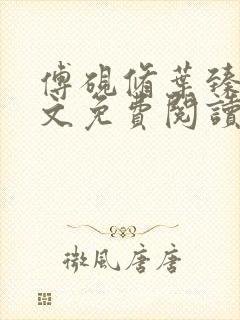 傅硯脩葉臻
文免費閱讀
微風唐唐